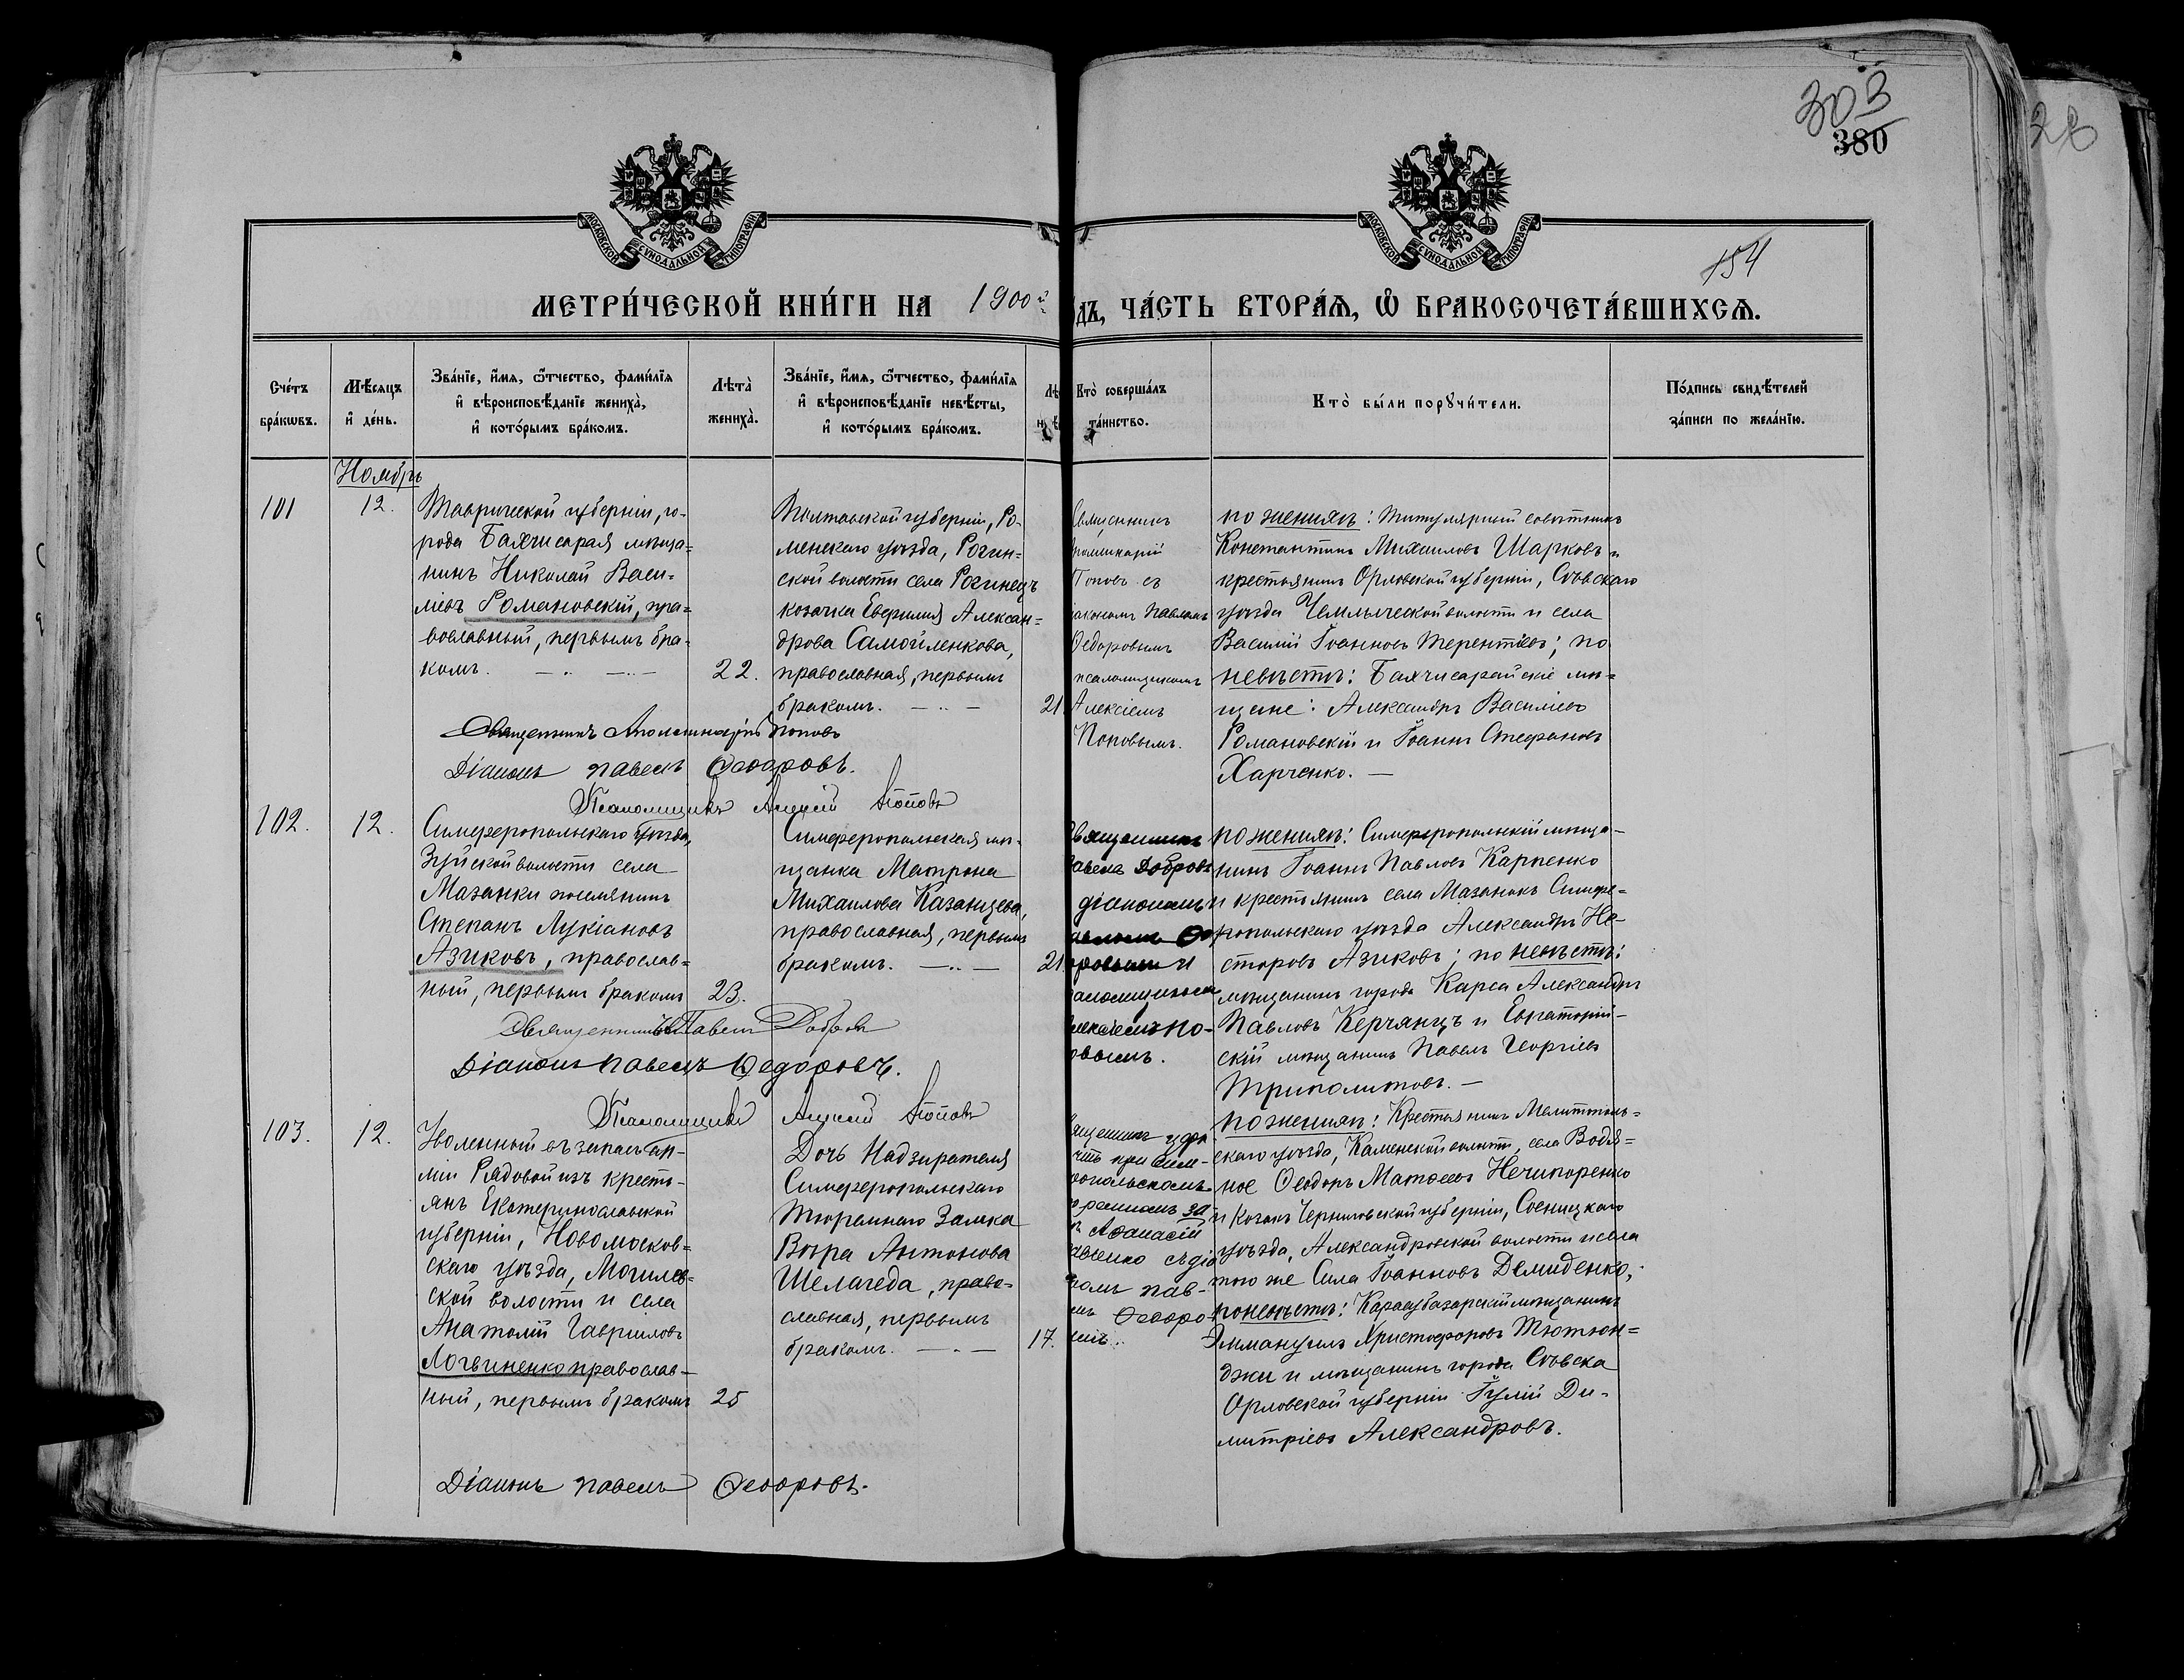 303
380
28
154
МОСКОВСКОЙ СѴНОДАЛЬНОЙ ТИПОГРАФІИ
МОСКОВСКОЙ СѴНОДАЛЬНОЙ ТИПОГРАФІИ
МЕТРИ́ЧЕСКОЙ КНИ́ГИ НА 1900й
дъ, ЧА́СТЬ ВТОРА́Ѧ, Ѽ БРАКОСОЧЕТА́ВШИХСѦ.
Сче́тъ
бра́кѡвъ.
Мѣ́сѧцъ
и҆ де́нь.
Зва́нїе, и҆́мѧ, ѻ҆́тчество, фами́лїѧ
и҆ вѣроисповѣ́данїе жениха̀,
и҆ кото́рымъ бра́комъ.
Лѣта̀
жениха̀.
Зва́нїе, и҆́мѧ, ѻ҆́тчество, фами́лїѧ
и҆ вѣроисповѣ́данїе невѣ́сты,
и҆ кото́рымъ бра́комъ.
Кто̀ соверша́лъ
та́инство.
Кто̀ бы́ли порꙋчи́тели.
По́дпись свидѣ́телей
за́писи по жела́нїю.
Ноябрь
101
12.
Таврической губерніи, го-
рода Бахчисарая мѣща=
нинъ Николай Васи-
ліевъ Романовскій, пра=
вославный, первымъ бра-
комъ.
22.
Полтавской губерніи, Ро-
менскаго уѣзда, Рогин=
ской волости села Рогинецъ
козачка Евфимія Алексан=
дрова Самойленкова,
православная, первымъ
бракомъ.
21
Священникъ
Поповъ съ
Павломъ
Ѳедоровымъ
псаломщикомъ
Алексіемъ
Поповымъ.
по женихѣ: Титулярный совѣтникъ
Константинъ Михаиловъ Шарковъ и
крестьянинъ Орловской губерніи, Сѣвскаго
уѣзда Чемлыческой волости и села
Василій Іоанновъ Терентіевъ; по
невѣстѣ: Бахчисарайскіе мѣ=
щане: Александръ Василіевъ
Романовскій и Іоаннъ Стефановъ
Харченко. —
Священникъ Аполинарій Поповъ
Діаконъ Павелъ Ѳеодоровъ.
Псаломщикъ Алексій Поповъ
102.
12.
Симферопольскаго уѣзда,
Зуйской волости села
Мазанки поселянинъ
Степанъ Лукіановъ
Азиковъ, православ=
ный, первымъ бракомъ
23.
Симферопольская мѣ-
щанка Матрона
Михаилова Казанцева,
православная, первымъ
бракомъ.
21
Священникъ
Павелъ Добровъ
діакономъ
и
псаломщикомъ
Алексіемъ По-
повымъ.
по женихѣ: Симферопольскій мѣща-
нинъ Іоаннъ Павловъ Карпенко
и крестьянинъ села Мазанокъ Симфе=
ропольскаго уѣзда Александръ Не-
сторовъ Азиковъ; по невѣстѣ:
мѣщанинъ города Карса Александръ
Павловъ Керчянцъ и Евпаторій-
скій мѣщанинъ Павелъ Георгіевъ
Триполитовъ. —
Священникъ Павелъ Добровъ
Діаконъ Павелъ Ѳедоровъ.
Псаломщикъ Алексій Поповъ
103.
12.
Уволенный въ запасъ ар-
міи Рядовой изъ кресть-
янъ Екатеринославской
губерніи, Новомосков=
скаго уѣзда, Могилев=
ской волости и села
Анатолій Гавріиловъ
Логвиненко православ-
ный, первымъ бракомъ
25
Дочь Надзирателя
Симферопольскаго
Тюремнаго Замка
Вѣра Антонова
Шелагеда, право-
славная, первымъ
бракомъ.
17.
при Сим-
ропольскомъ
Аѳанасій
съ діа
Пав-
Ѳеодоро
по женихѣ: Крестьянинъ Мелитополь=
скаго уѣзда, Каменской волости, села Водя=
ное Ѳеодоръ Матѳеевъ Нечипоренко
и Козакъ Черниговской губерніи, Сосницкаго
уѣзда, Александровской волости и села
того же Сила Іоанновъ Демиденко;
по невѣстѣ: Карасубазарскій мѣщанинъ
Эммануилъ Христофоровъ Тютюн=
джи и мѣщанинъ города Сѣвска
Орловской губерніи Іулій Ди-
митріевъ Александровъ.
Діаконъ Павелъ Ѳеодоровъ.